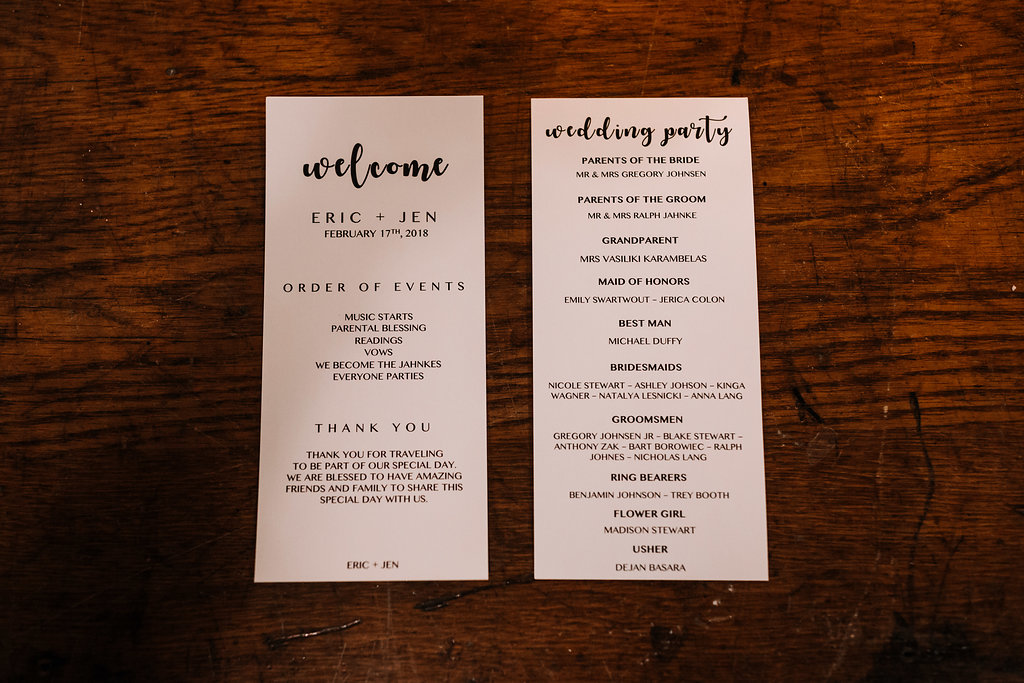 welcome
ERIC + JEN
FEBRUARY 17TH, 2018
ORDER OF EVENTS
MUSIC STARTS
PARENTAL BLESSING
READINGS
VOWS
WE BECOME THE JAHNKES
EVERYONE PARTIES
THANK YOU
THANK YOU FOR TRAVELING
TO BE PART OF OUR SPECIAL DAY.
WE ARE BLESSED TO HAVE AMAZING
FRIENDS AND FAMILY TO SHARE THIS
SPECIAL DAY WITH US.
ERIC + JEN
wedding party
PARENTS OF THE BRIDE
MR & MRS GREGORY JOHNSEN
PARENTS OF THE GROOM
MR & MRS RALPH JAHNKE
GRANDPARENT
MRS VASILIKI KARAMBELAS
MAID OF HONORS
EMILY SWARTWOUT – JERICA COLON
BEST MAN
MICHAEL DUFFY
BRIDESMAIDS
NICOLE STEWART – ASHLEY JOHSON – KINGA
WAGNER – NATALYA LESNICKI – ANNA LANG
GROOMSMEN
GREGORY JOHNSEN JR – BLAKE STEWART –
ANTHONY ZAK – BART BOROWIEC – RALPH
JOHNES – NICHOLAS LANG
RING BEARERS
BENJAMIN JOHNSON – TREY BOOTH
FLOWER GIRL
MADISON STEWART
USHER
DEJAN BASARA